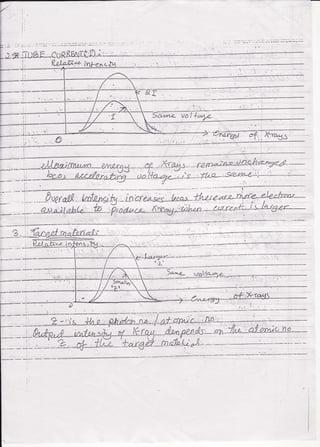 2. TUBE CURRENT(I):
Relative intensity
2I
I
Same voltage
Energy of X-rays
0
Maximum energy of X-rays remains unchanged
bcos accelerating voltage is the same.
Overall intensity increases bcos there are more electrons
available to produce X-ray, when current is larger
3. Target material
Relative intensity
Larger
'Z'
Same voltage
Smaller
'Z'
Energy of X-rays
0
Z - is the photon no / atomic no.
Output intensity of X-ray depends on the atomic no
Z of the target material.